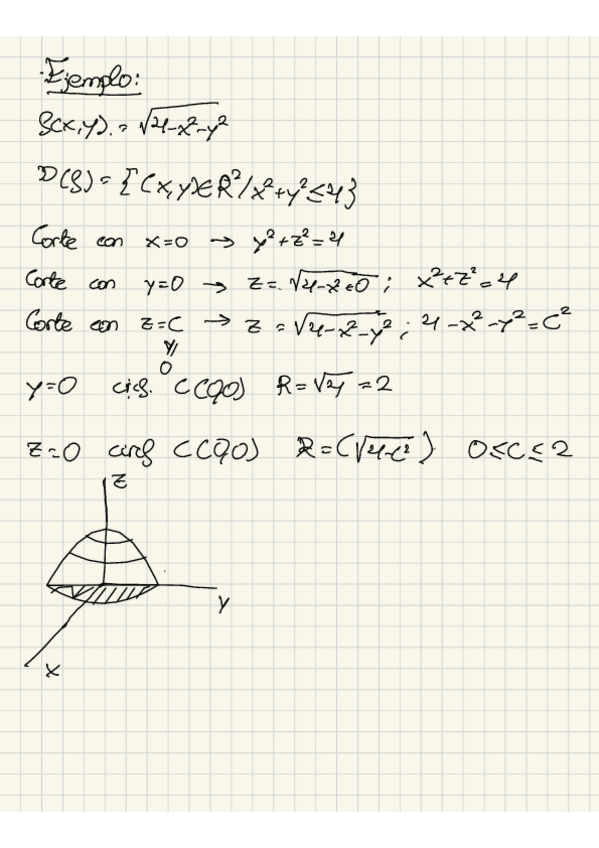 Ejemplo:
f(x,y) = √4-x²-y²
D(f) = {(x,y)∈R²/x²+y²≤4}
Corte con x=0 → y²+z²=4
Corte con y=0 → z = √4-x²+0 ; x²+z²=4
Corte con z=C → z = √4-x²-y² ; 4-x²-y²=C²
0
y=0 circ. C(0,0) R=√4 = 2
z=0 circf C(0,0) R=(√4-c²) 0≤C≤2
z
y
x